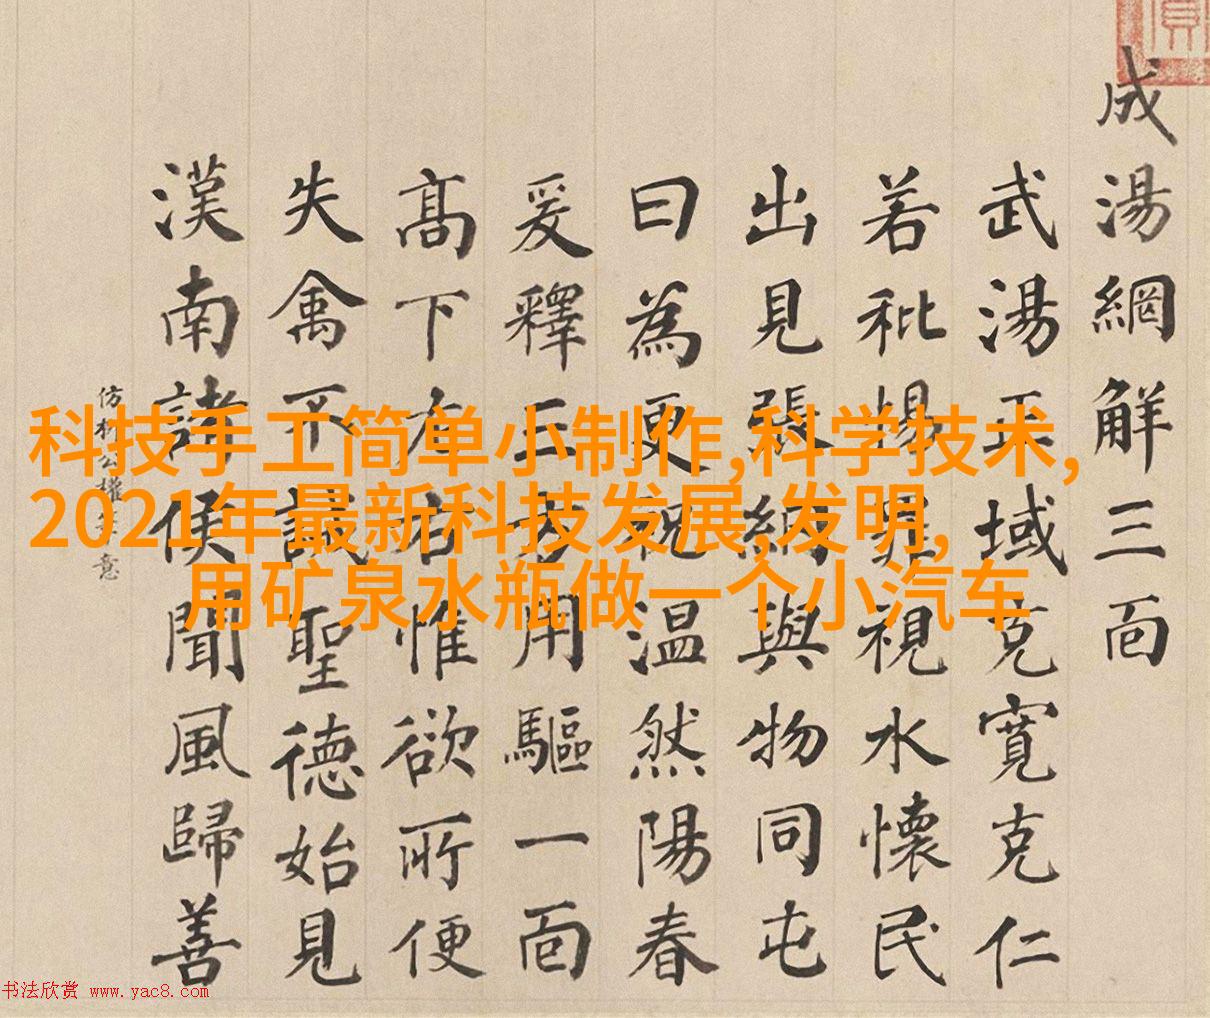 成湯網解三面
武湯正域克寬克仁
若秕惕視水懷民
出見張網與物同屯
曰為更祝温然陽春
爰釋三用驅一面
髙下左右惟欲所便
失禽不誡聖德始見
漢南諸侯聞風歸善
仿柳公權筆意
科技手工简单小制作,科学技术,
2021年最新科技发展,发明,
用矿泉水瓶做一个小汽车
书法欣赏 www.yac8.com